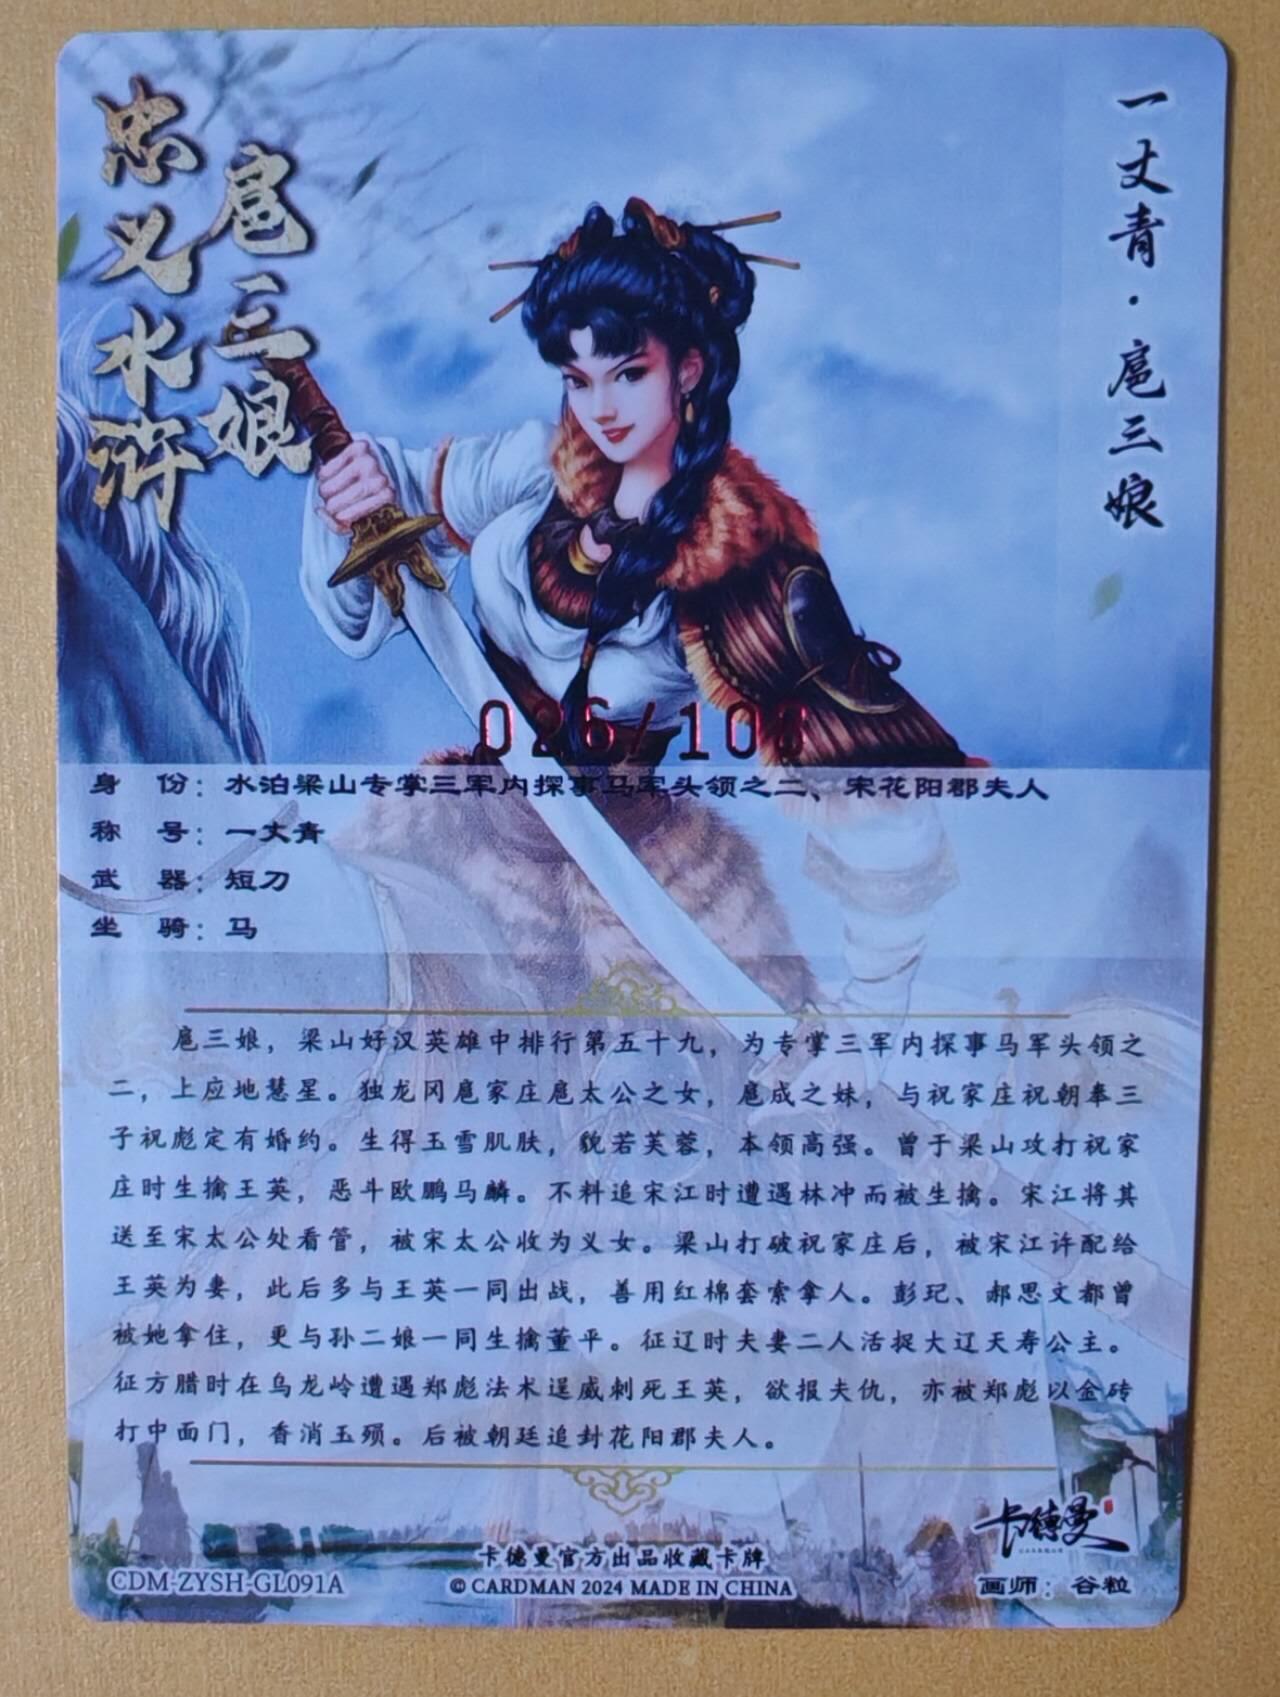 忠义水浒
扈三娘
一丈青·扈三娘
026/108
身 份：水泊梁山专掌三军内探事马军头领之二、宋花阳郡夫人
称 号：一丈青
武 器：短刀
坐 骑：马
扈三娘，梁山好汉英雄中排行第五十九，为专掌三军内探事马军头领之
二，上应地慧星。独龙冈扈家庄扈太公之女，扈成之妹，与祝家庄祝朝奉三
子祝彪定有婚约。生得玉雪肌肤，貌若芙蓉，本领高强。曾于梁山攻打祝家
庄时生擒王英，恶斗欧鹏马麟。不料追宋江时遭遇林冲而被生擒。宋江将其
送至宋太公处看管，被宋太公收为义女。梁山打破祝家庄后，被宋江许配给
王英为妻，此后多与王英一同出战，善用红棉套索拿人。彭玘、郝思文都曾
被她拿住，更与孙二娘一同生擒董平。征辽时夫妻二人活捉大辽天寿公主。
征方腊时在乌龙岭遭遇郑彪法术逞威刺死王英，欲报夫仇，亦被郑彪以金砖
打中面门，香消玉殒。后被朝廷追封花阳郡夫人。
卡德曼
卡德曼官方出品收藏卡牌
CDM-ZYSH-GL091A
© CARDMAN 2024 MADE IN CHINA
画师：谷粒